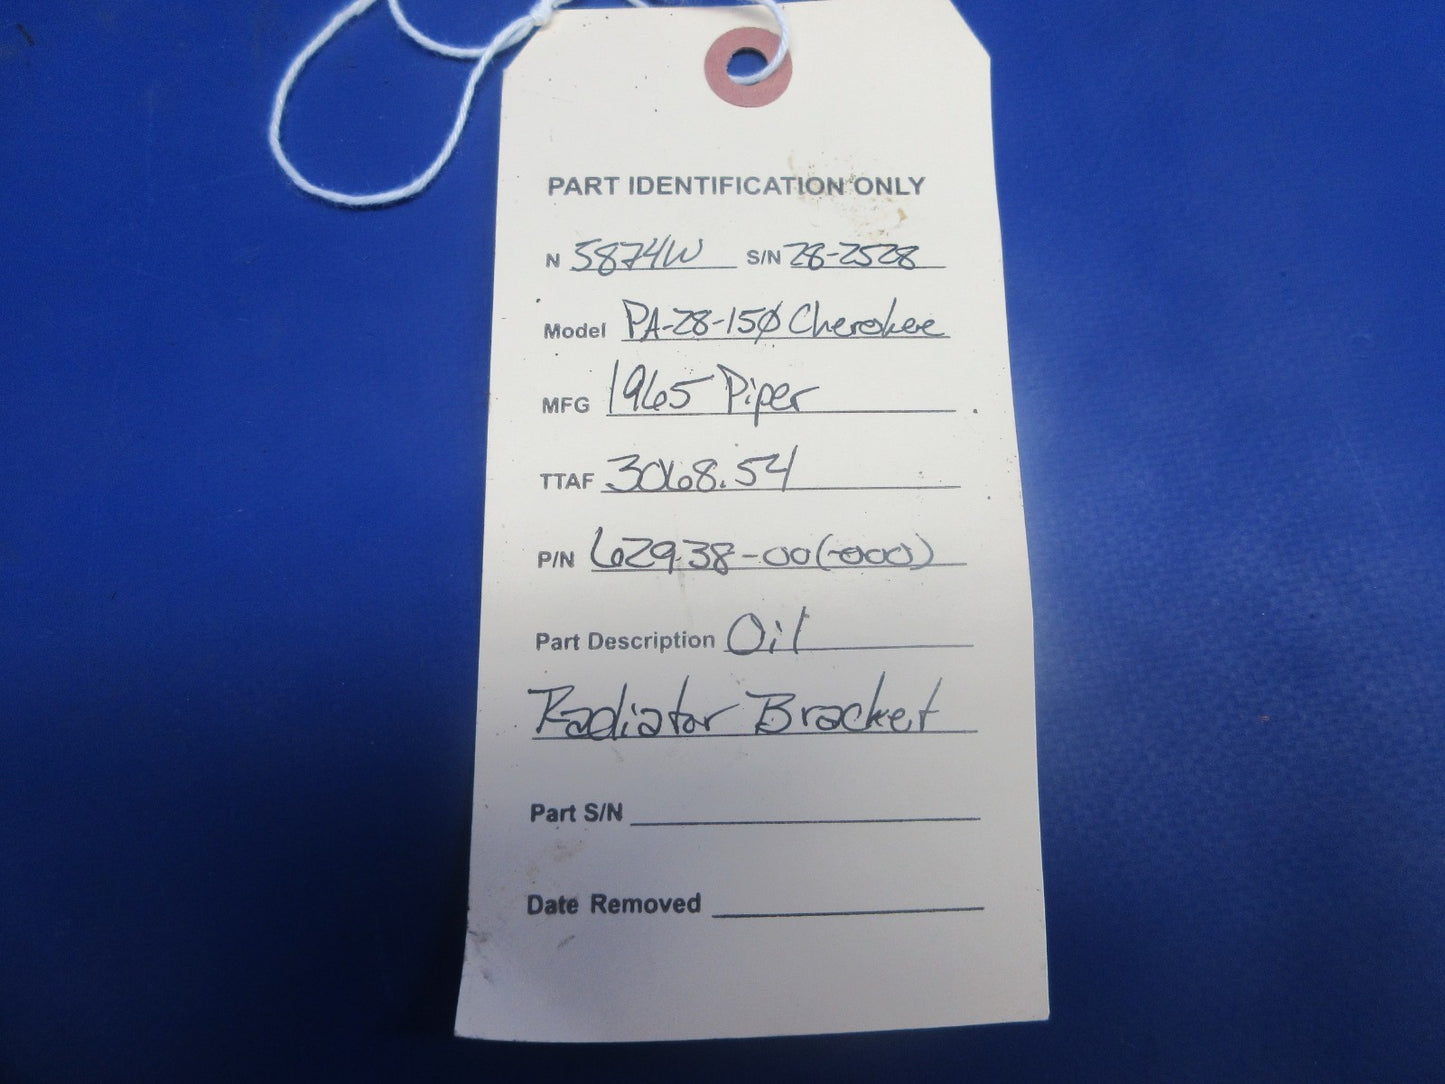 PART IDENTIFICATION ONLY
N 5874W S/N 28-2528
Model PA-28-150 Cherokee
MFG 1965 Piper
TTAF 3068.54
P/N 62938-00(-000)
Part Description Oil
Radiator Bracket
Part S/N
Date Removed